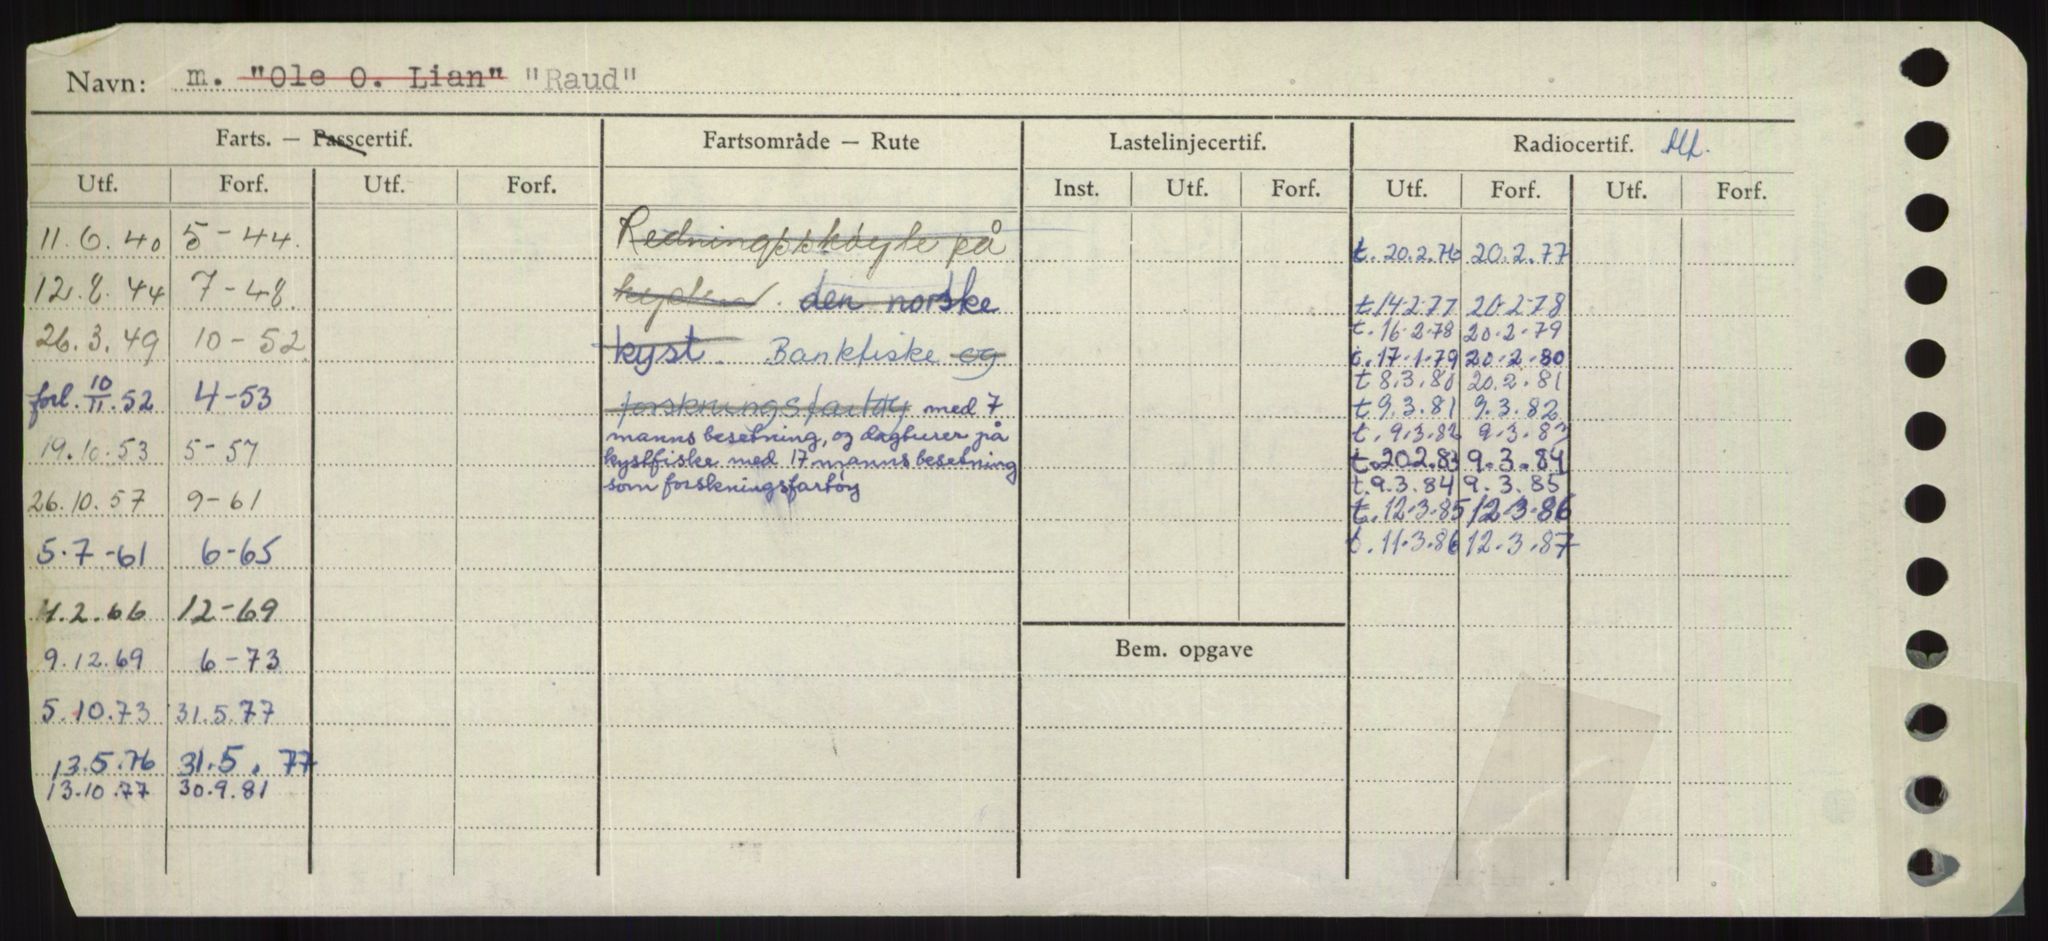 Navn: m. "Ole O. Lian" "Raud"
Farts. — Passcertif. Fartsområde — Rute Lastelinjecertif. Radiocertif.
Utf. Forf. Utf. Forf. Inst. Utf. Forf. Utf. Forf. Utf. Forf.
11.6.40 5-44. Redningsskøyte på t. 20.2.76 20.2.77
12.8.44 7-48 kysten. den norske t 14.2.77 20.2.78
t. 16.2.78 20.2.79
26.3.49 10-52 kyst. Bankfiske og t. 17.1.79 20.2.80
t 8.3.80 20.2.81
forl. 10/11.52 4-53 forskningsfartøy med 7 t 9.3.81 9.3.82
manns besetning, og dagturer på t. 9.3.82 9.3.83
19.10.53 5-57 kystfiske med 17 manns besetning t. 20.2.83 9.3.84
som forskningsfartøy t. 9.3.84 9.3.85
26.10.57 9-61 t. 12.3.85 12.3.86
5.7-61 6-65 t. 11.3.86 12.3.87
4.2.66 12-69
Bem. opgave
9.12.69 6-73
5.10.73 31.5.77
13.5.76 31.5.77
13.10.77 30.9.81